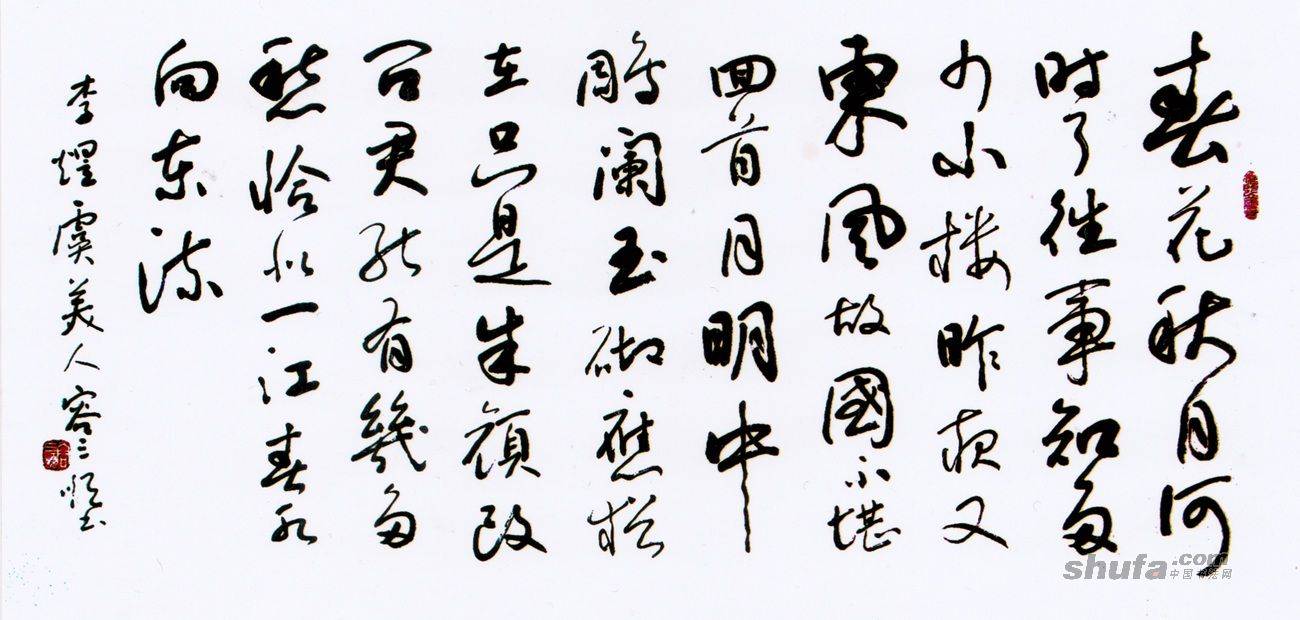 春花秋月何
时了往事知多
少小楼昨夜又
東风故國不堪
回首月明中
雕阑玉砌應猶
在只是朱颜改
问君能有幾多
愁恰似一江春水
向东流
李煜虞美人容三顺书
shufa.com
中国书法网